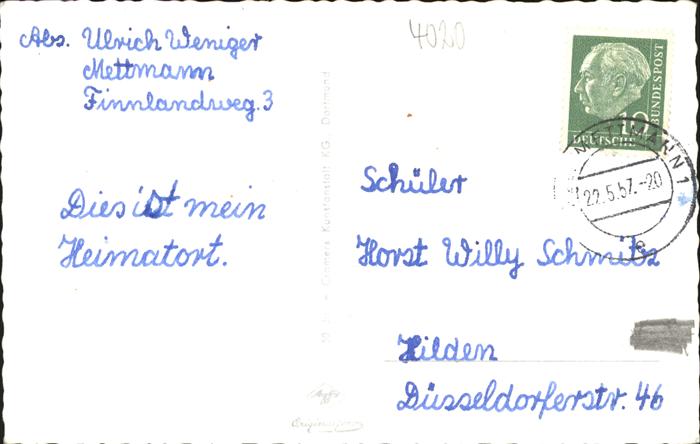 Abs. Ulrich Weniger
Mettmann
Finnlandweg. 3
4020
10
DEUTSCHE BUNDESPOST
METTMANN 1
22.5.57.-20
e
Dies ist mein
Heimatort.
Cramers Kunstanstalt KG., Dortmund
Schüler
Horst Willy Schmitz
Hilden
Düsseldorferstr. 46